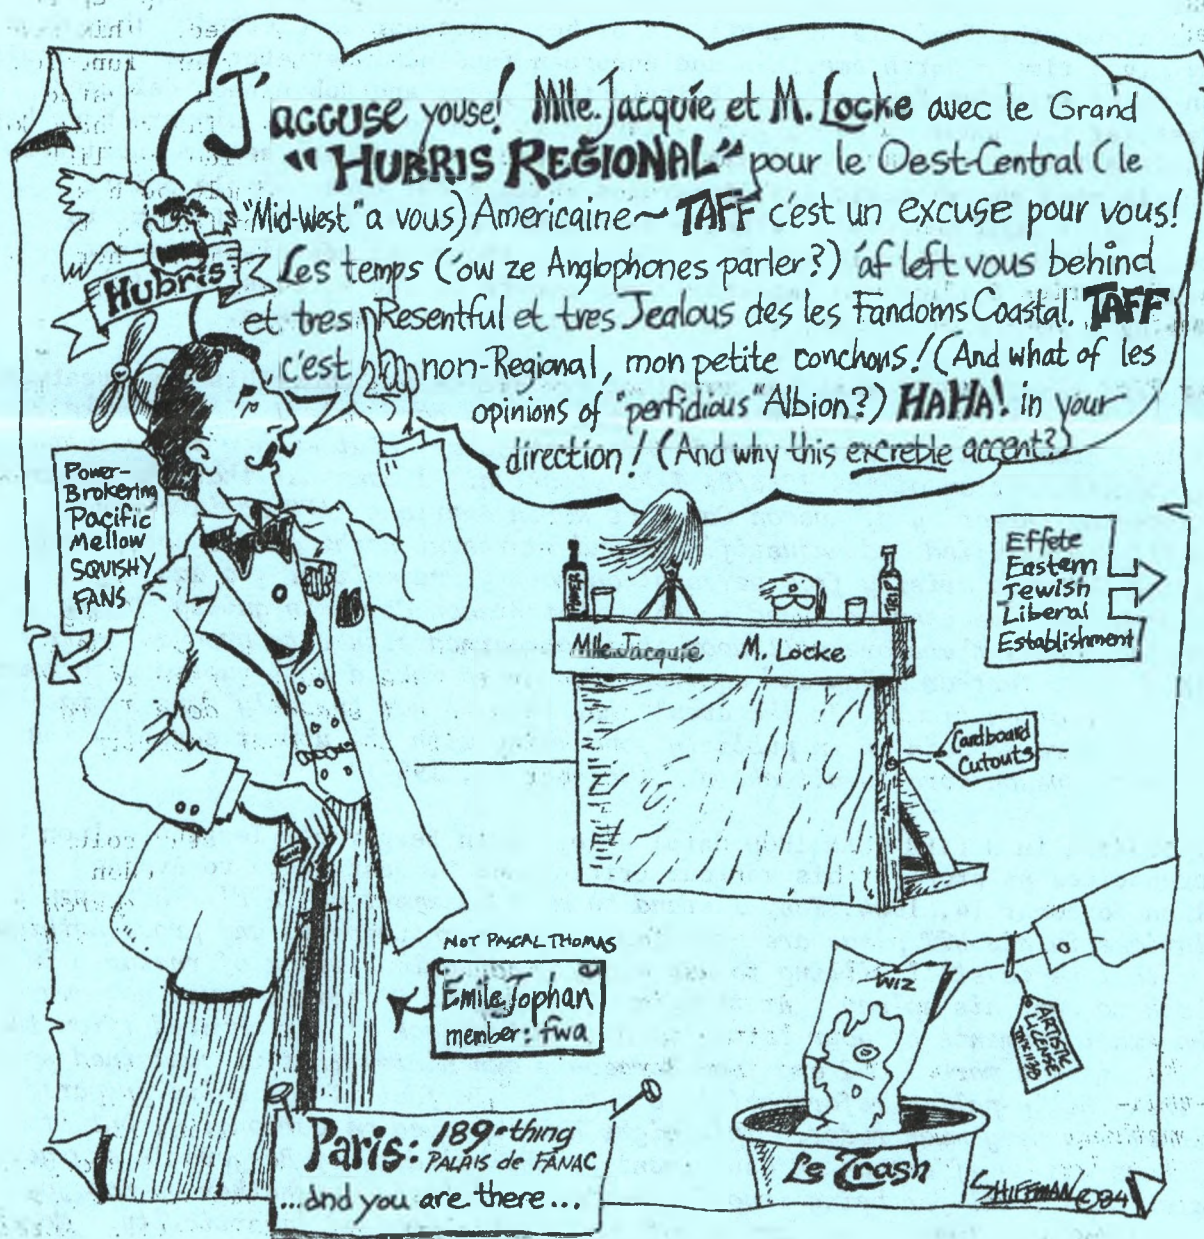 J'accuse youse! Mlle. Jacquie et M. Locke avec le Grand
"HUBRIS REGIONAL" pour le Oest-Central (le
"Mid-West" a vous) Americaine ~ TAFF c'est un excuse pour vous!
Les temps ('ow ze Anglophones parler?) 'af left vous behind
et tres Resentful et tres Jealous des les Fandoms Coastal. TAFF
c'est non-Regional, mon petite conchons! (And what of les
opinions of "perfidious" Albion?) HAHA! in your
direction! (And why this excreble accent?)
Hubris
Power-
Brokering
Pacific
Mellow
SQUISHY
FANS
Effete
Eastern
Jewish
Liberal
Establishment
Mlle. Jacquie M. Locke
Cardboard
Cutouts
NOT PASCAL THOMAS
Emile Tophan
member: fwa
WIZ
ARTISTIC
LICENSE
Le Trash
Paris: 189-thing
PALAIS de FANAC
...and you are there...
SHIFFMAN ©84